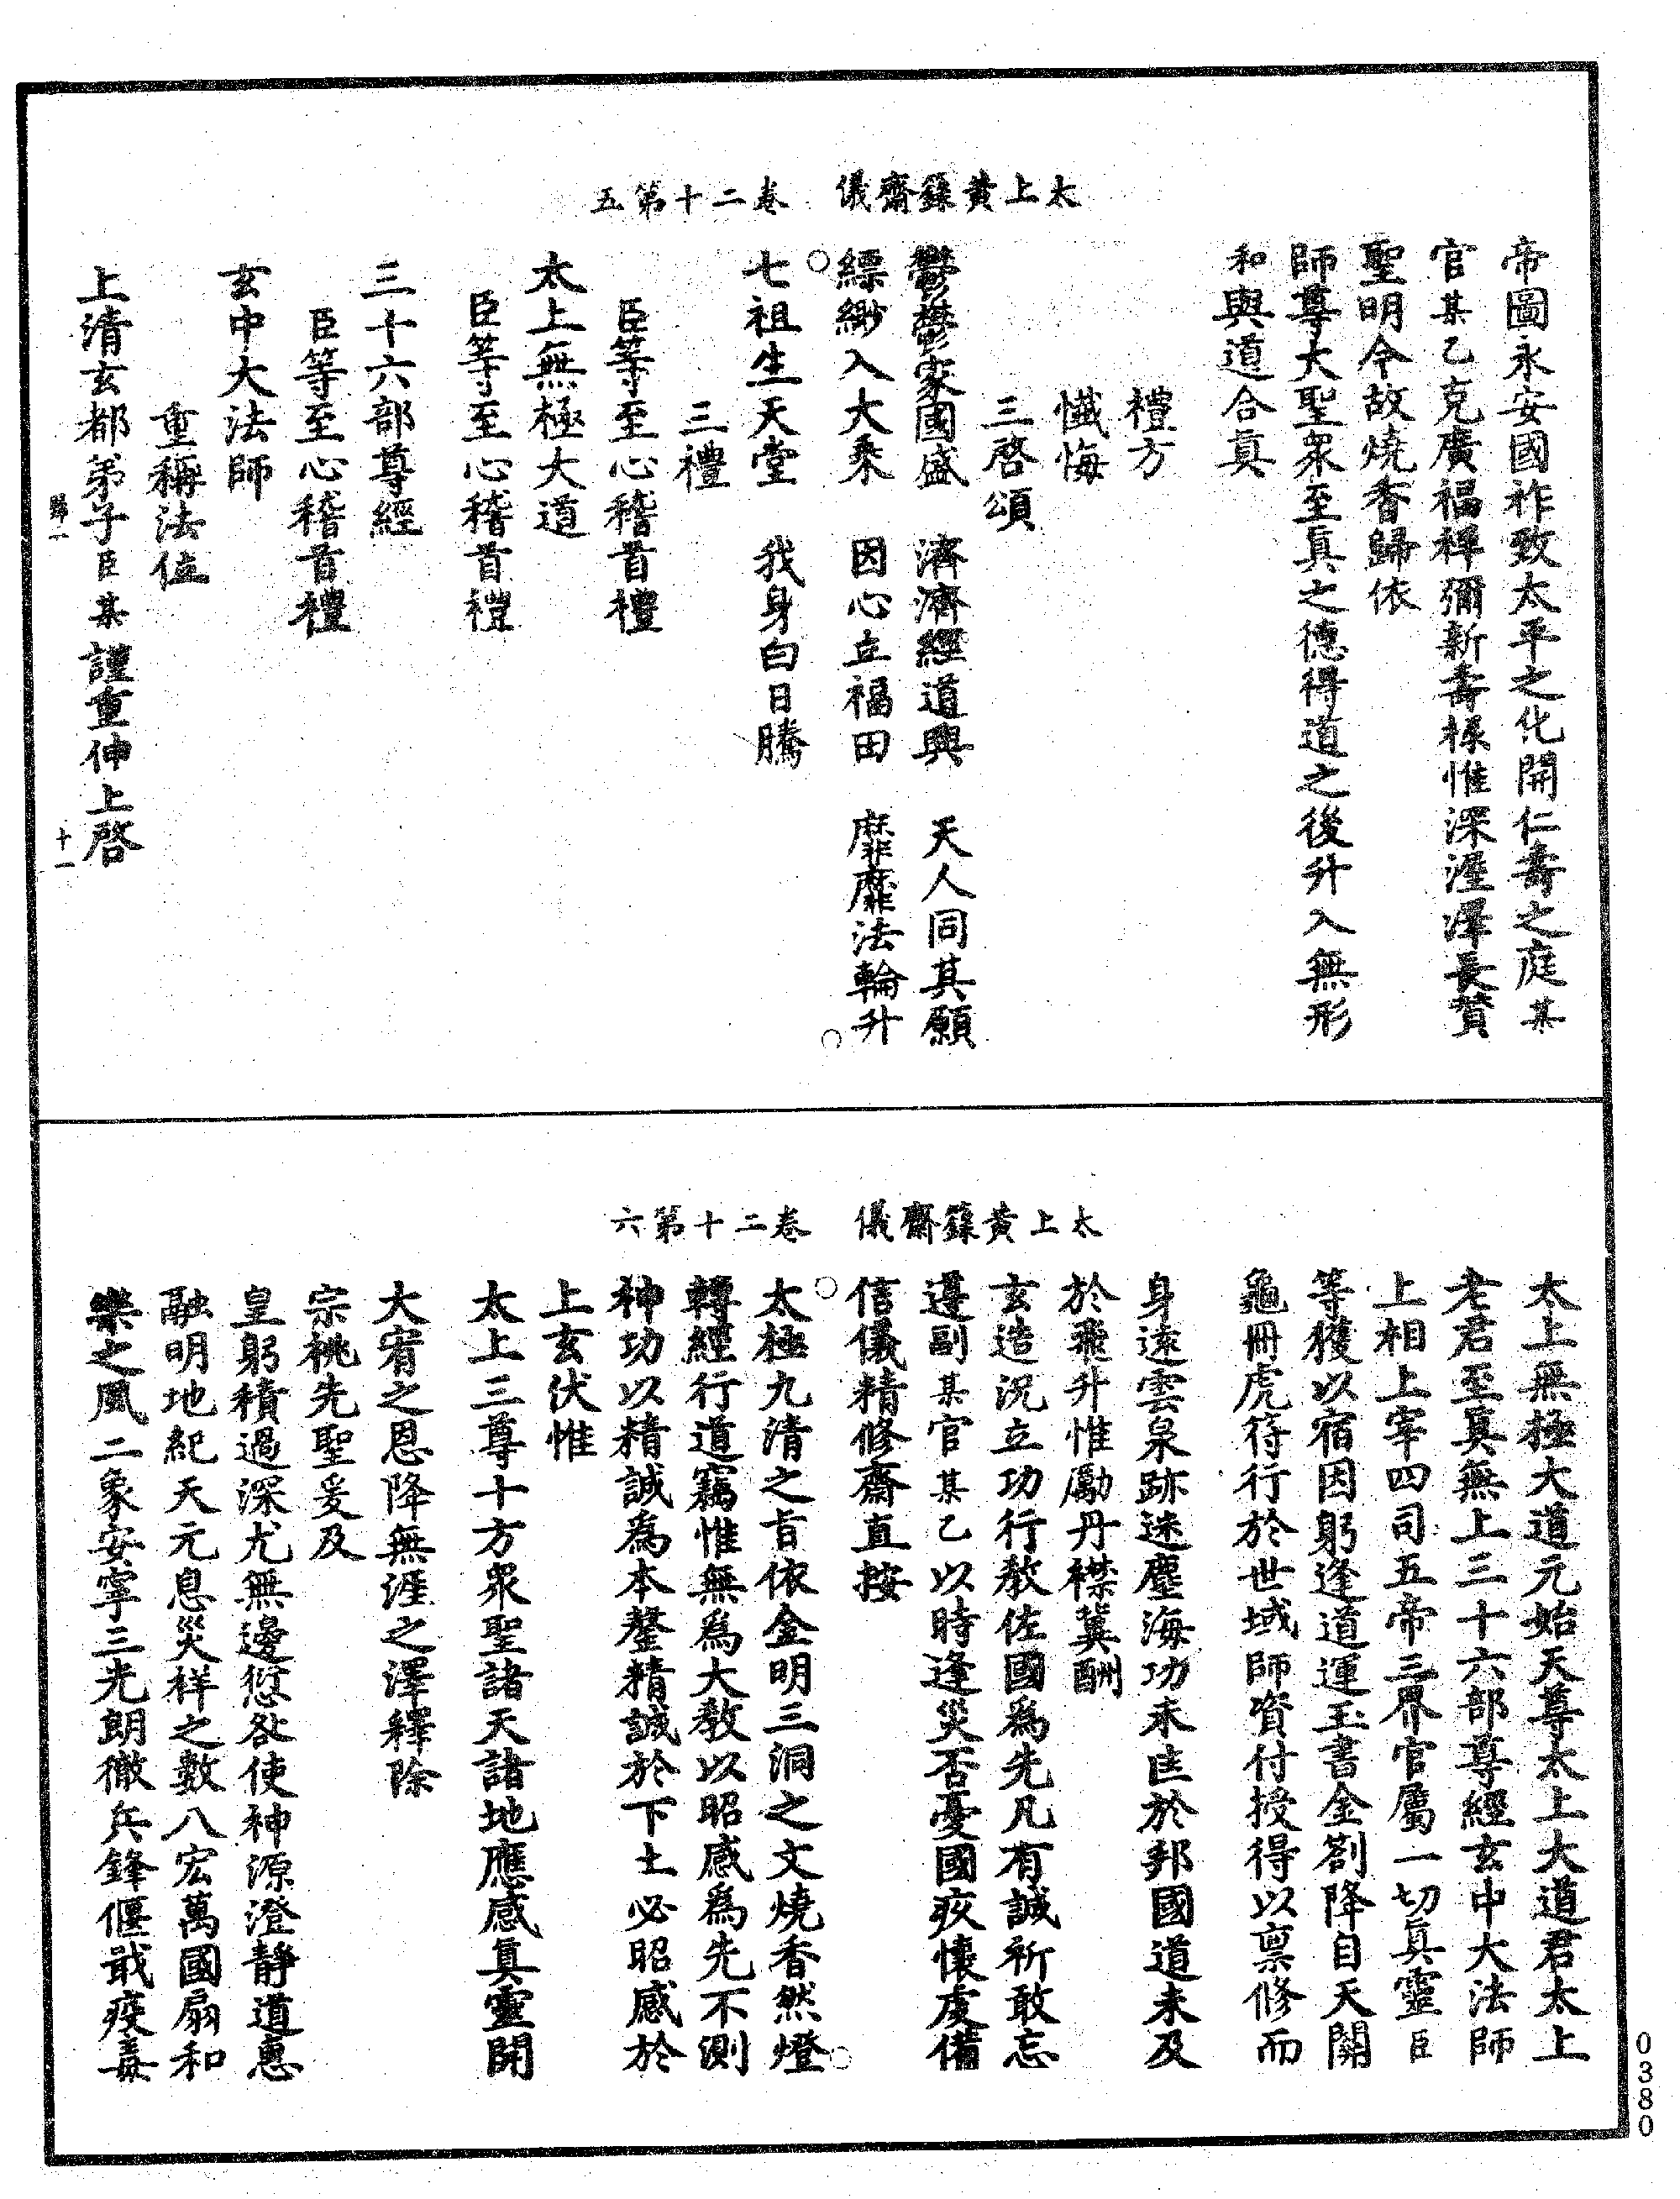 太上黃籙齋儀　卷二十第五
帝圖永安國祚致太平之化開仁壽之庭某
官某乙克廣福禪彌新壽祿惟深渥澤長贊
聖明今故燒香歸依
師尊大聖眾至真之德得道之後升入無形
和與道合真
禮方
懺悔
三啓頌
鬱鬱家國盛　濟濟經道興　天人同其願
縹緲入大乘　因心立福田　靡靡法輪升
七祖生天堂　我身白日騰
三禮
臣等至心稽首禮
太上無極大道
臣等至心稽首禮
三十六部尊經
臣等至心稽首禮
玄中大法師
重稱法位
上清玄都弟子臣某謹重伸上啓
十一
太上黃籙齋儀　卷二十第六
太上無極大道元始天尊太上大道君太上
老君至真無上三十六部尊經玄中大法師
上相上宰四司五帝三界官屬一切真靈臣
等獲以宿因躬逢道運玉書金劄降自天關
龜冊虎符行於世域師資付授得以禀修而
身遠雲泉跡迷塵海功未匡於邦國道未及
於飛升惟勵丹襟冀酬
玄造況立功行教佐國為先凡有誠祈敢忘
遵副某官某乙以時逢災否憂國疚懷虔備
信儀精修齋直按
太極九清之旨依金明三洞之文燒香然燈
轉經行道竊惟無為大教以昭感為先不測
神功以精誠為本罄精誠於下土必昭感於
上玄伏惟
太上三尊十方眾聖諸天諸地應感真靈開
大宥之恩降無涯之澤釋除
宗祧先聖爰及
皇躬積過深尤無邊愆咎使神源澄靜道惠
融明地紀天元息災祥之數八宏萬國扇和
樂之風二象安寧三光朗徹兵鋒偃戢疫毒
0380